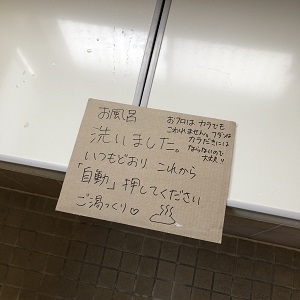 お風呂
洗いました。
いつもどおり これから
「自動」押してください
ご湯っくり♡
おフロは カラでも
こわれません。フタンは
カラだきには
ならないので
大丈夫!!